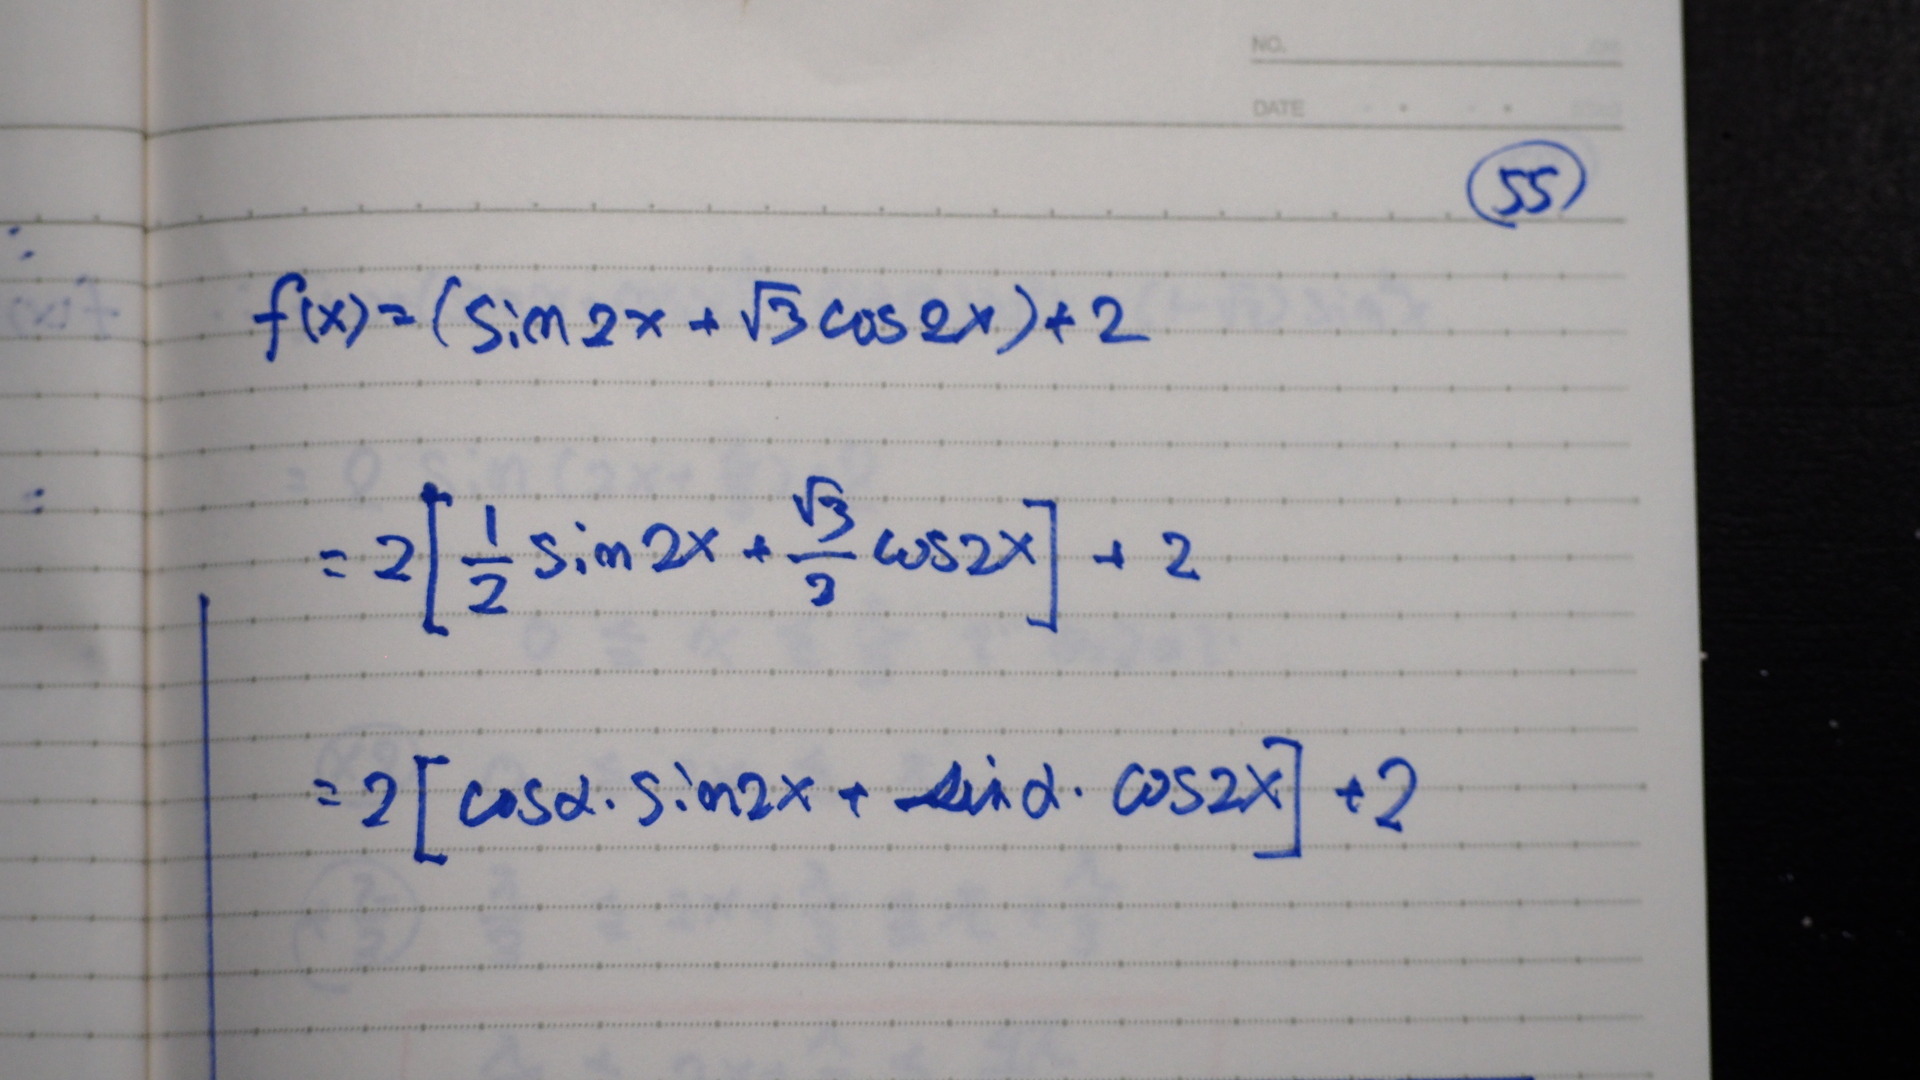 NO.
DATE
55
f(x)=(sin2x+√3cos2x)+2
=2[1/2 sin2x+√3/2 cos2x]+2
=2[cosα·sin2x+sinα·cos2x]+2